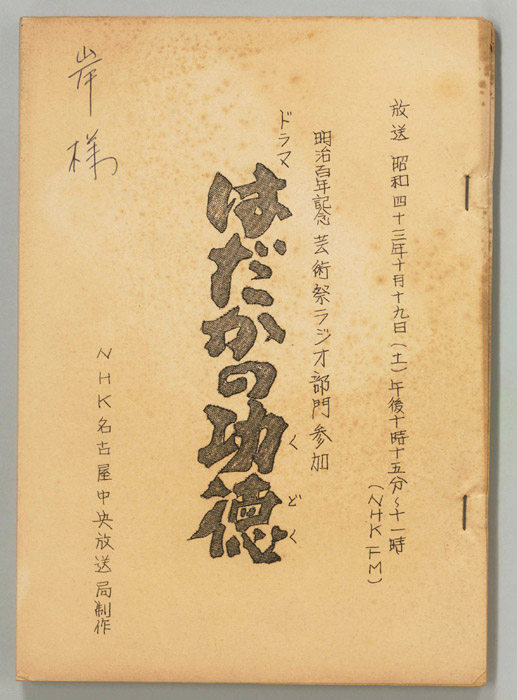 放送 昭和四十三年十月十九日(土)午後十時十五分~十一時
(NHKFM)
明治百年記念 芸術祭ラジオ部門参加
ドラマ
はだかの功徳
くどく
NHK名古屋中央放送局制作
岸様